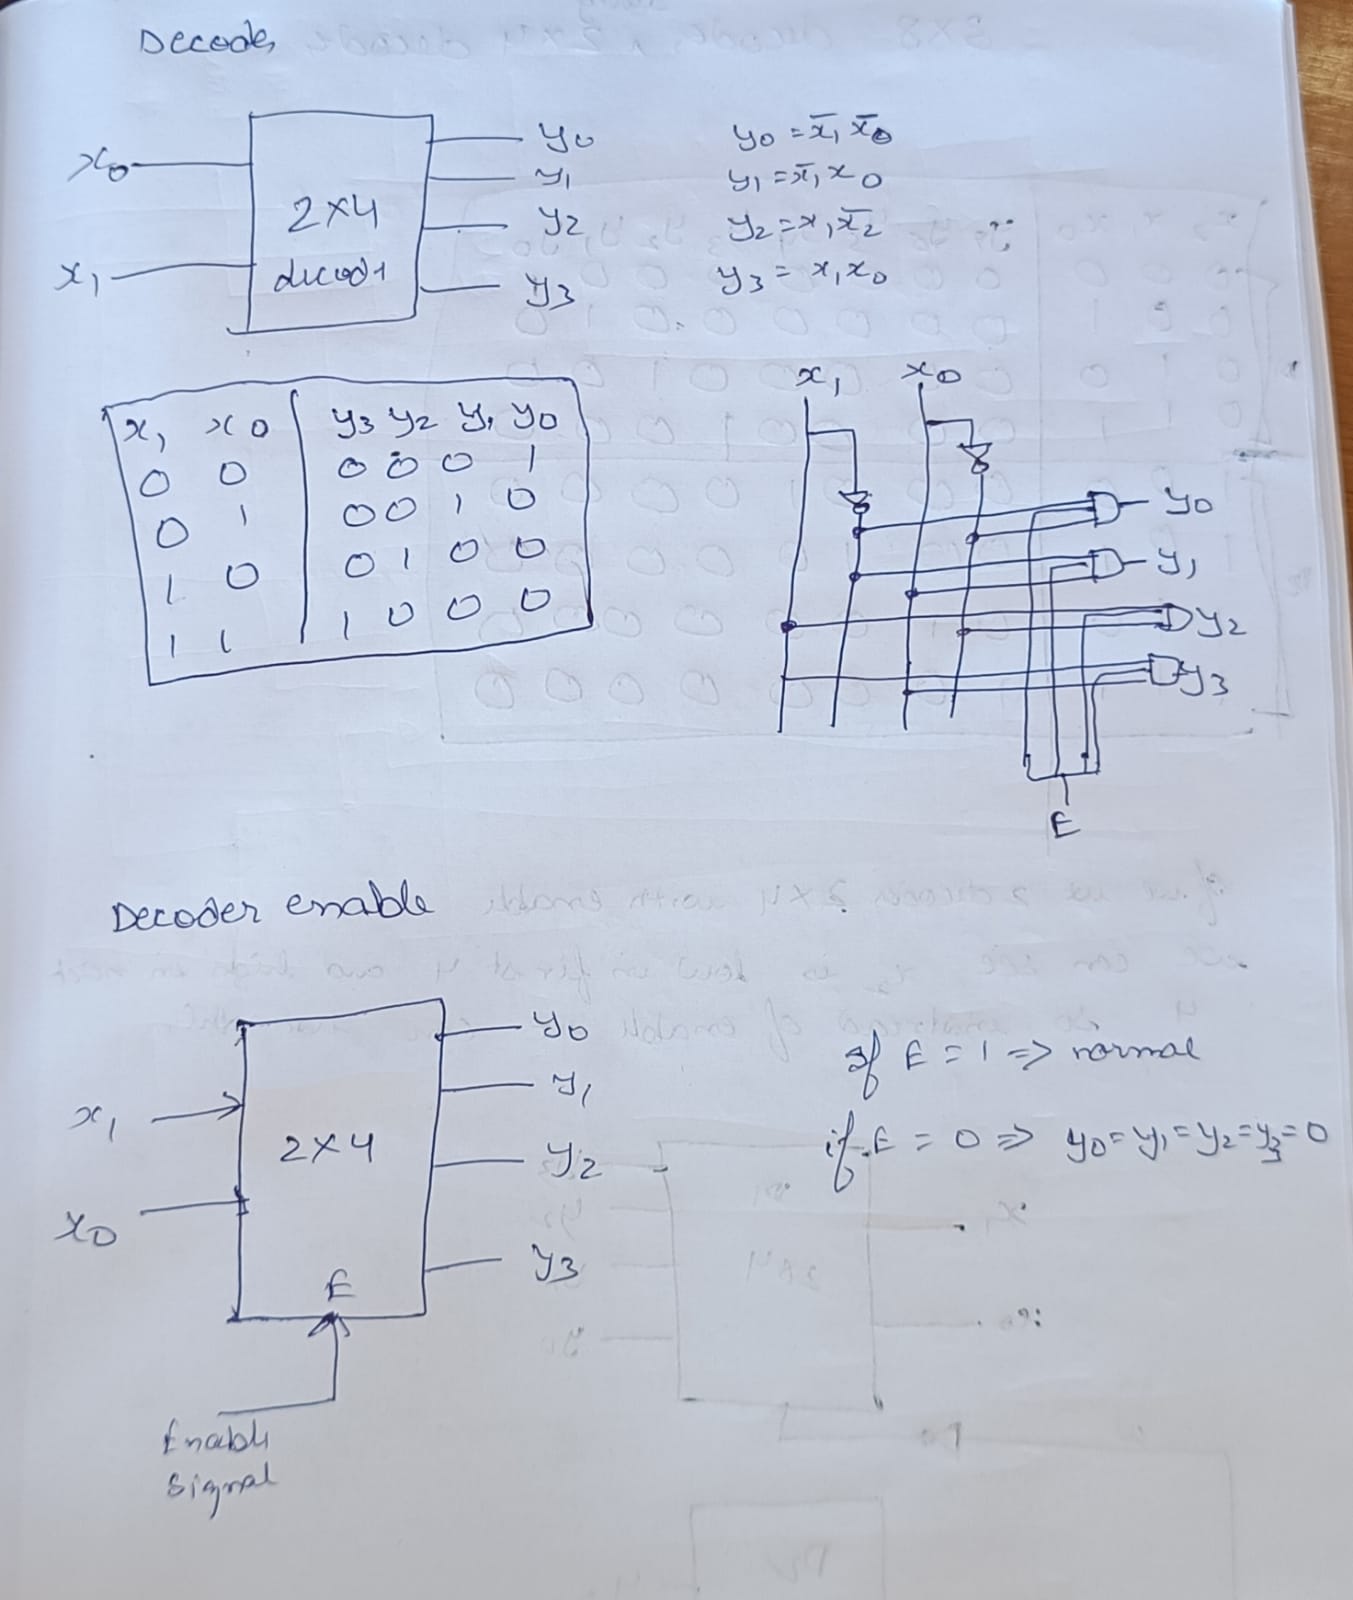 Decoder
x0
x1
2x4
decodr
y0
y1
y2
y3
y0 = x̄1 x̄0
y1 = x̄1 x0
y2 = x1 x̄2
y3 = x1 x0
x1 x0 y3 y2 y1 y0
0 0 0 0 0 1
0 1 0 0 1 0
1 0 0 1 0 0
1 1 1 0 0 0
x1 x0
y0
y1
y2
y3
E
Decoder enable
x1
x0
2x4
E
y0
y1
y2
y3
Enable
Signal
If E = 1 => normal
if E = 0 => y0 = y1 = y2 = y3 = 0